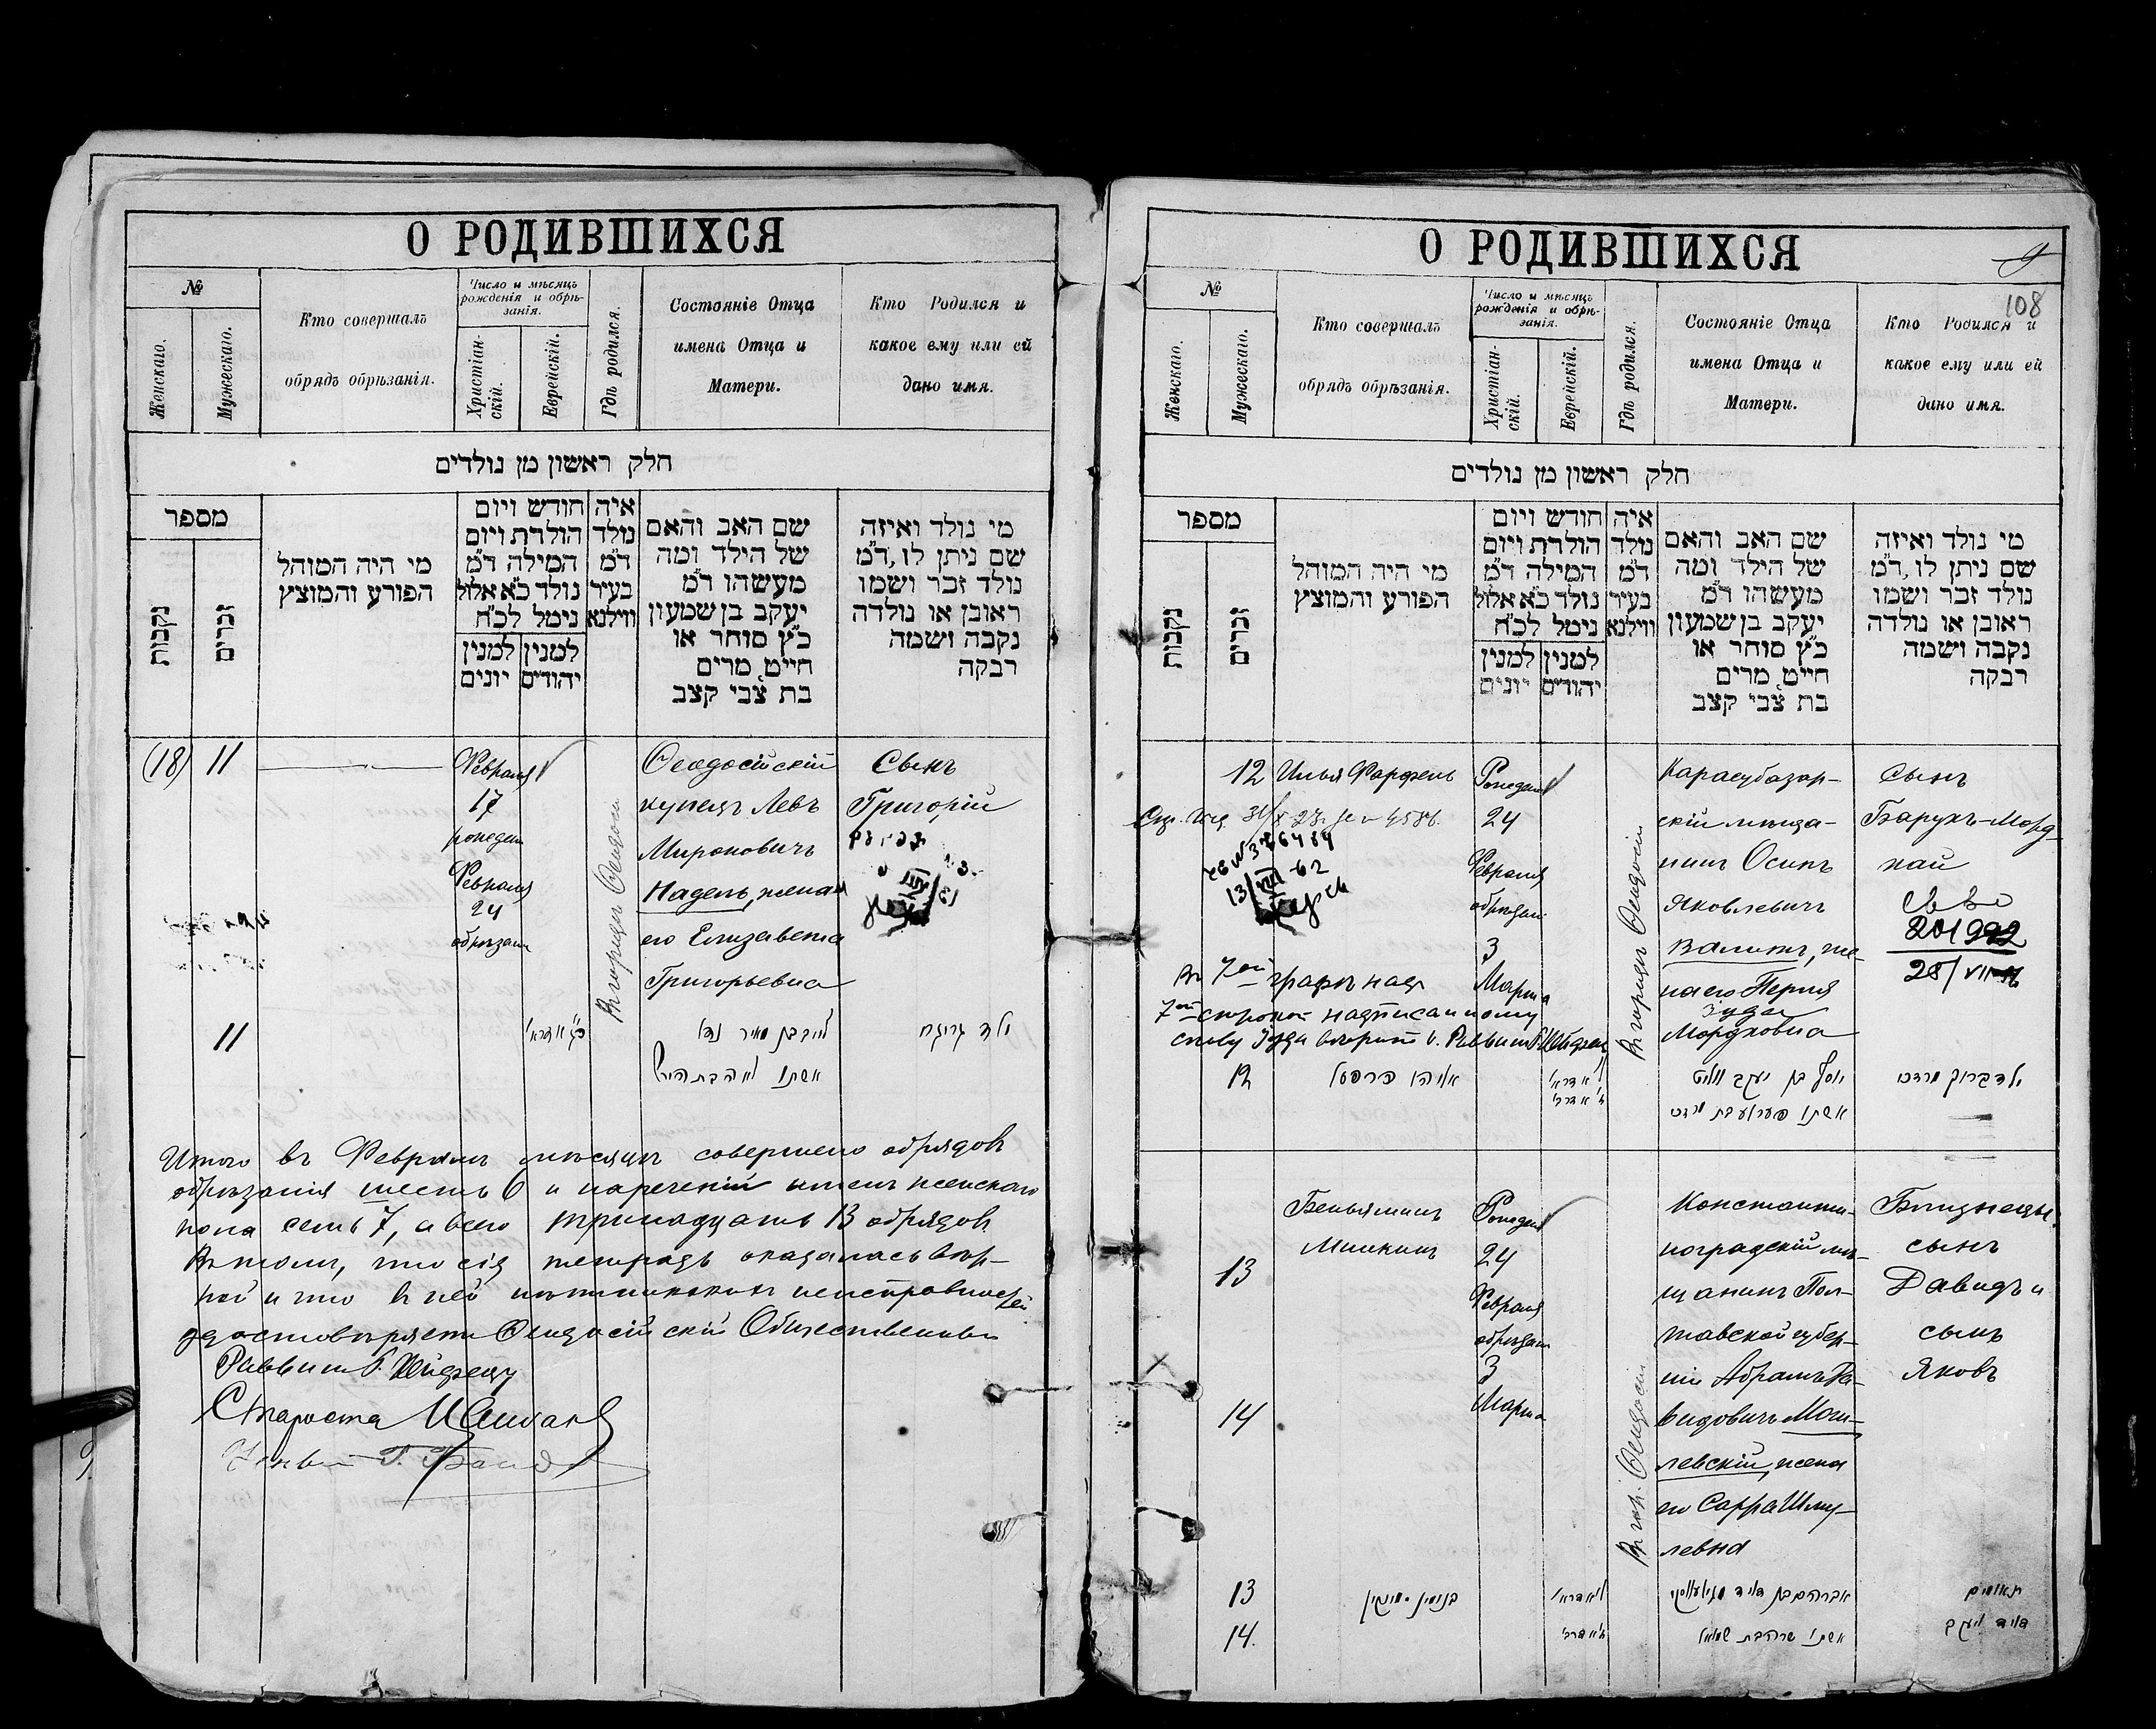 О РОДИВШИХСЯ
№
Женскаго.
Мужескаго.
Кто совершалъ
обрядъ обрѣзанія.
Число и мѣсяцъ
рожденія и обрѣ-
занія.
Христіан-
скій.
Еврейскій.
Гдѣ родился.
Состояніе Отца
имена Отца и
Матери.
Кто Родился и
какое ему или ей
дано имя.
חלק ראשון מן נולדים
מספר
נקבות
זכרים
מי היה המוהל
הפורע והמוצץ
חודש ויום
הולדת ויום
המילה ד״מ
נולד כ״א אלול
נימל לכ״ח
למנין יונים
למנין יהודים
איה
נולד
ד״מ
בעיר
ווילנא
שם האב והאם
של הילד ומה
מעשהו ד״מ
יעקב בן שמעון
כ״ץ סוחר או
חייט מרים
בת צבי קצב
מי נולד ואיזה
שם ניתן לו, ד״מ
נולד זכר ושמו
ראובן או נולדה
נקבה ושמה
רבקה
(18) 11
Февраля
17
рожден
Февраля
24
обрѣзан
Въ городѣ Ѳеодосіи
Ѳеодосійскій
купецъ Левъ
Мироновичъ
Надель, жена
его Елизавета
Григорьевна
Сынъ
Григорій
11
Итого въ Февралѣ мѣсяцѣ совершено обрядовъ
обрѣзанія шесть 6 и нареченій именъ женскаго
пола семь 7, а всего тринадцать 13 обрядовъ
Въ томъ, что сія тетрадь оказалась вѣр-
ной и что въ ней нѣтъ никакихъ неисправностей
удостовѣряетъ Ѳеодосійскій Общественный
Раввинъ
Староста
О РОДИВШИХСЯ
9
108
№
Женскаго.
Мужескаго.
Кто совершалъ
обрядъ обрѣзанія.
Число и мѣсяцъ
рожденія и обрѣ-
занія.
Христіан-
скій.
Еврейскій.
Гдѣ родился.
Состояніе Отца
имена Отца и
Матери.
Кто Родился и
какое ему или ей
дано имя.
חלק ראשון מן נולדים
מספר
נקבות
זכרים
מי היה המוהל
הפורע והמוצץ
חודש ויום
הולדת ויום
המילה ד״מ
נולד כ״א אלול
נימל לכ״ח
למנין יונים
למנין יהודים
איה
נולד
ד״מ
בעיר
ווילנא
שם האב והאם
של הילד ומה
מעשהו ד״מ
יעקב בן שמעון
כ״ץ סוחר או
חייט מרים
בת צבי קצב
מי נולד ואיזה
שם ניתן לו, ד״מ
נולד זכר ושמו
ראובן או נולדה
נקבה ושמה
רבקה
12
Илья Фарфель
Рожден
24
Февраля
обрѣзан
3
Марта
Въ городѣ Ѳеодосіи
Карасубазар-
скій мѣща-
нинъ Осипъ
Яковлевичъ
Валитъ, же-
на его Перля
Зуда
Мордковна
Сынъ
Барухъ-Морд-
хай
28/VII
въ 7ой графѣ надъ
7ой строкой надписанному
слову Зуда вѣрить. Раввинъ
12
יוסף בן יעקב וואליט
ילד ברוך מרדכי
13
14
Беньяминъ
Минкинъ
Рожден
24
Февраля
обрѣзан
3
Марта
Въ гор. Ѳеодосіи
Константи-
ноградскій мѣ-
щанинъ Пол-
тавской губер-
ніи Абрамъ Да-
видовичъ Моги-
левскій, жена
его Сарра Шму-
левна
Близнецы:
сынъ
Давидъ и
сынъ
Яковъ
13
14.
תאומים
דוד ויעקב